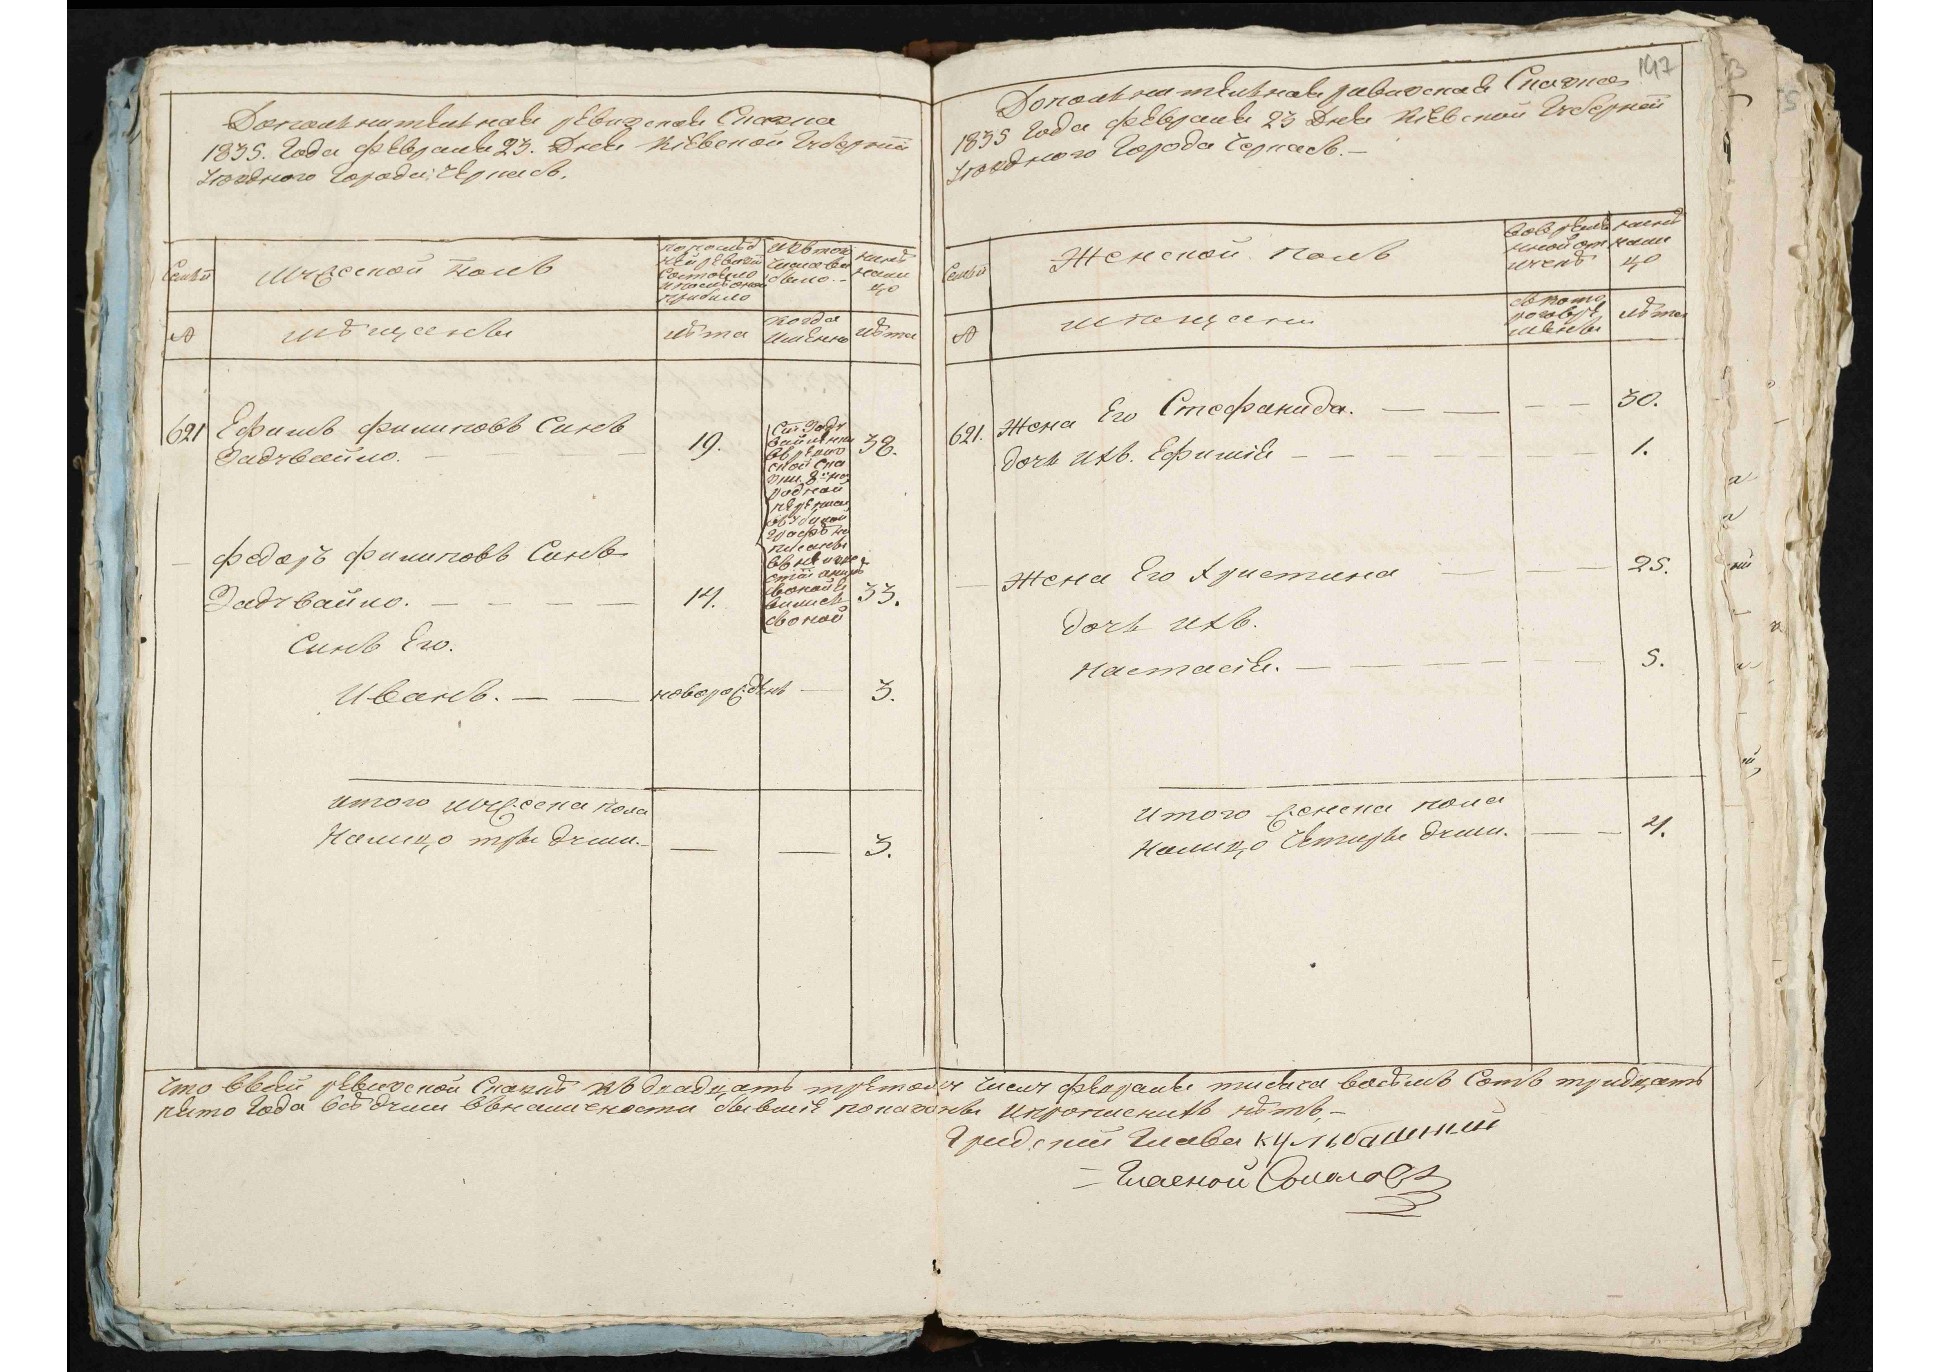 Дополнительная ревизская Сказка
1835. Года февраля 23. Дня Кіевской Губерніи
уезднаго Города Черкасъ.
Семьи
Мужеской полъ
по последней ревизіи состояло и после оной прибыло
Изъ того числа выбыло.
ныне на лицо
№
мѣщаны
лѣта
когда имянно
лѣта
621
Ефимъ филиповъ Синъ
Задувайло.
19.
38.
федоръ филиповъ Синъ
Задувайло.
14.
33.
Синъ Его.
Иванъ.
новорожденъ
3.
итого мужеска пола
Налицо три души.
3.
147
Дополнительная ревизская Сказка
1835 Года февраля 23 Дня Кіевской Губерніи
уезднаго Города Черкасъ.
Семьи
Женской полъ
ныне на лицо
№
мещани
лѣта
621.
Жена Его Стефанида.
30.
дочь ихъ. Ефимія
1.
Жена Его Христина
25.
дочь ихъ.
Настасія.
5.
итого женска пола
Налицо Четыре души.
4.
что в сей ревизской Сказке къ двадцать третому числу февраля тисяча восѣмъ Сотъ тридцать
пято Года всѣ души въ наличности бывшіе показаны и прописнихъ нѣтъ,
Градскій Глава
Гласной